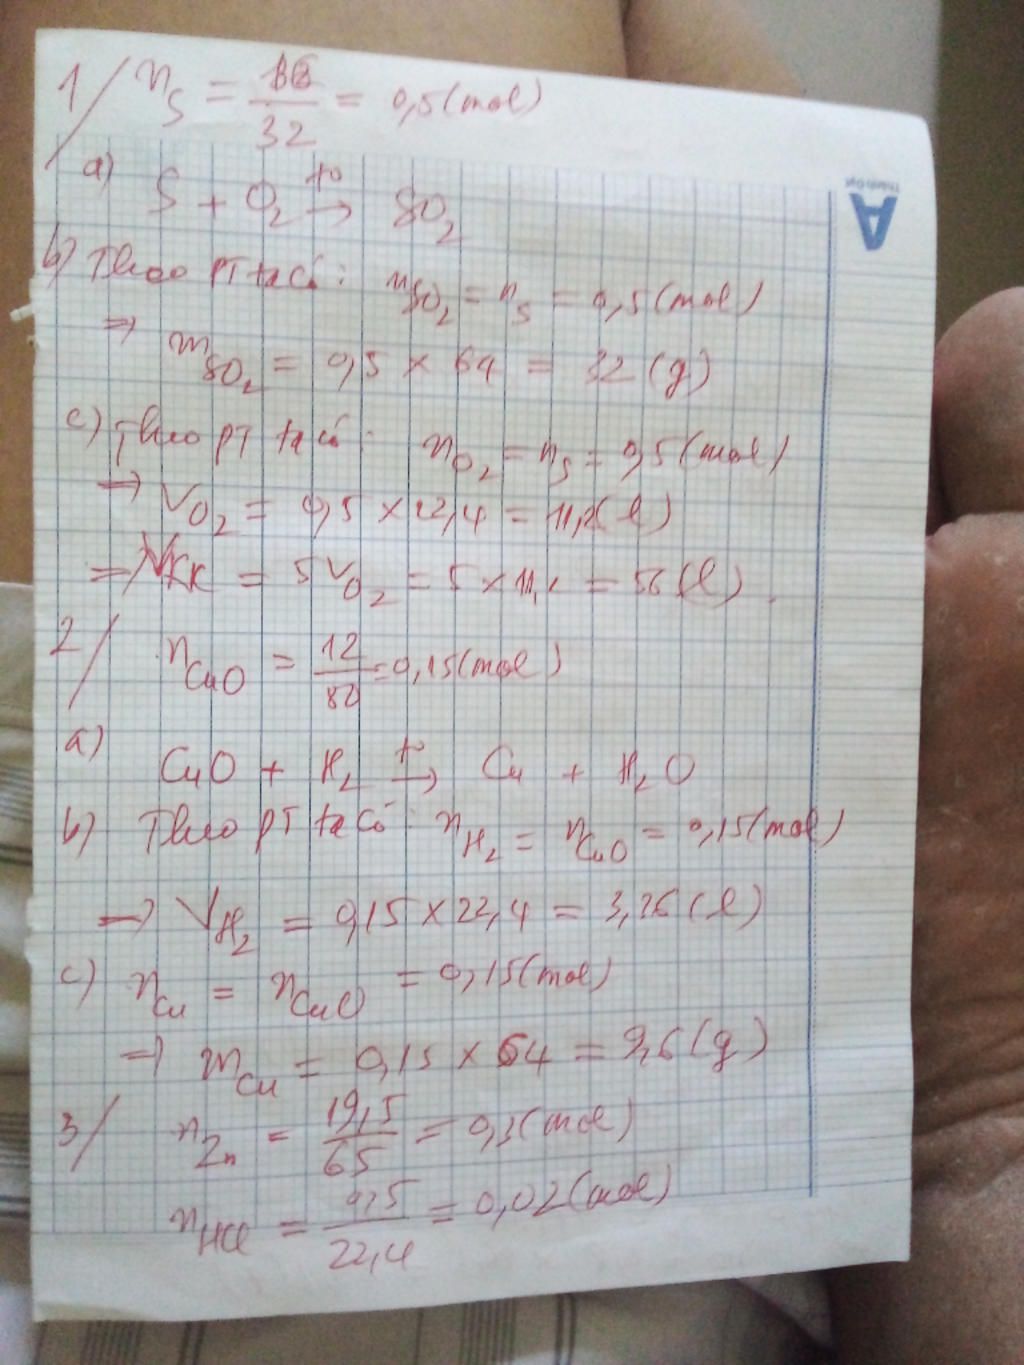 1/ n_S = 16/32 = 0,5 (mol)
a) S + O₂ →(t°) SO₂
b) Theo PT ta có: n_SO₂ = n_S = 0,5 (mol)
⇒ m_SO₂ = 0,5 × 64 = 32 (g)
c) Theo PT ta có: n_O₂ = n_S = 0,5 (mol)
→ V_O₂ = 0,5 × 22,4 = 11,2 (l)
⇒ V_KK = 5V_O₂ = 5 × 11,2 = 56 (l).
2/ n_CuO = 12/80 = 0,15 (mol)
a) CuO + H₂ →(t°) Cu + H₂O
b) Theo PT ta có: n_H₂ = n_CuO = 0,15 (mol)
→ V_H₂ = 0,15 × 22,4 = 3,36 (l)
c) n_Cu = n_CuO = 0,15 (mol)
⇒ m_Cu = 0,15 × 64 = 9,6 (g)
3/ n_Zn = 19,5/65 = 0,3 (mol)
n_HCl = 0,5/22,4 = 0,02 (mol)
A